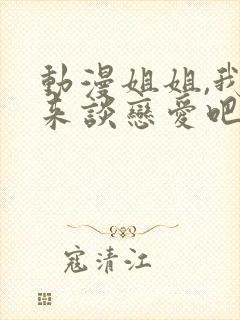 動漫姐姐,我
來談戀愛吧
寇清江